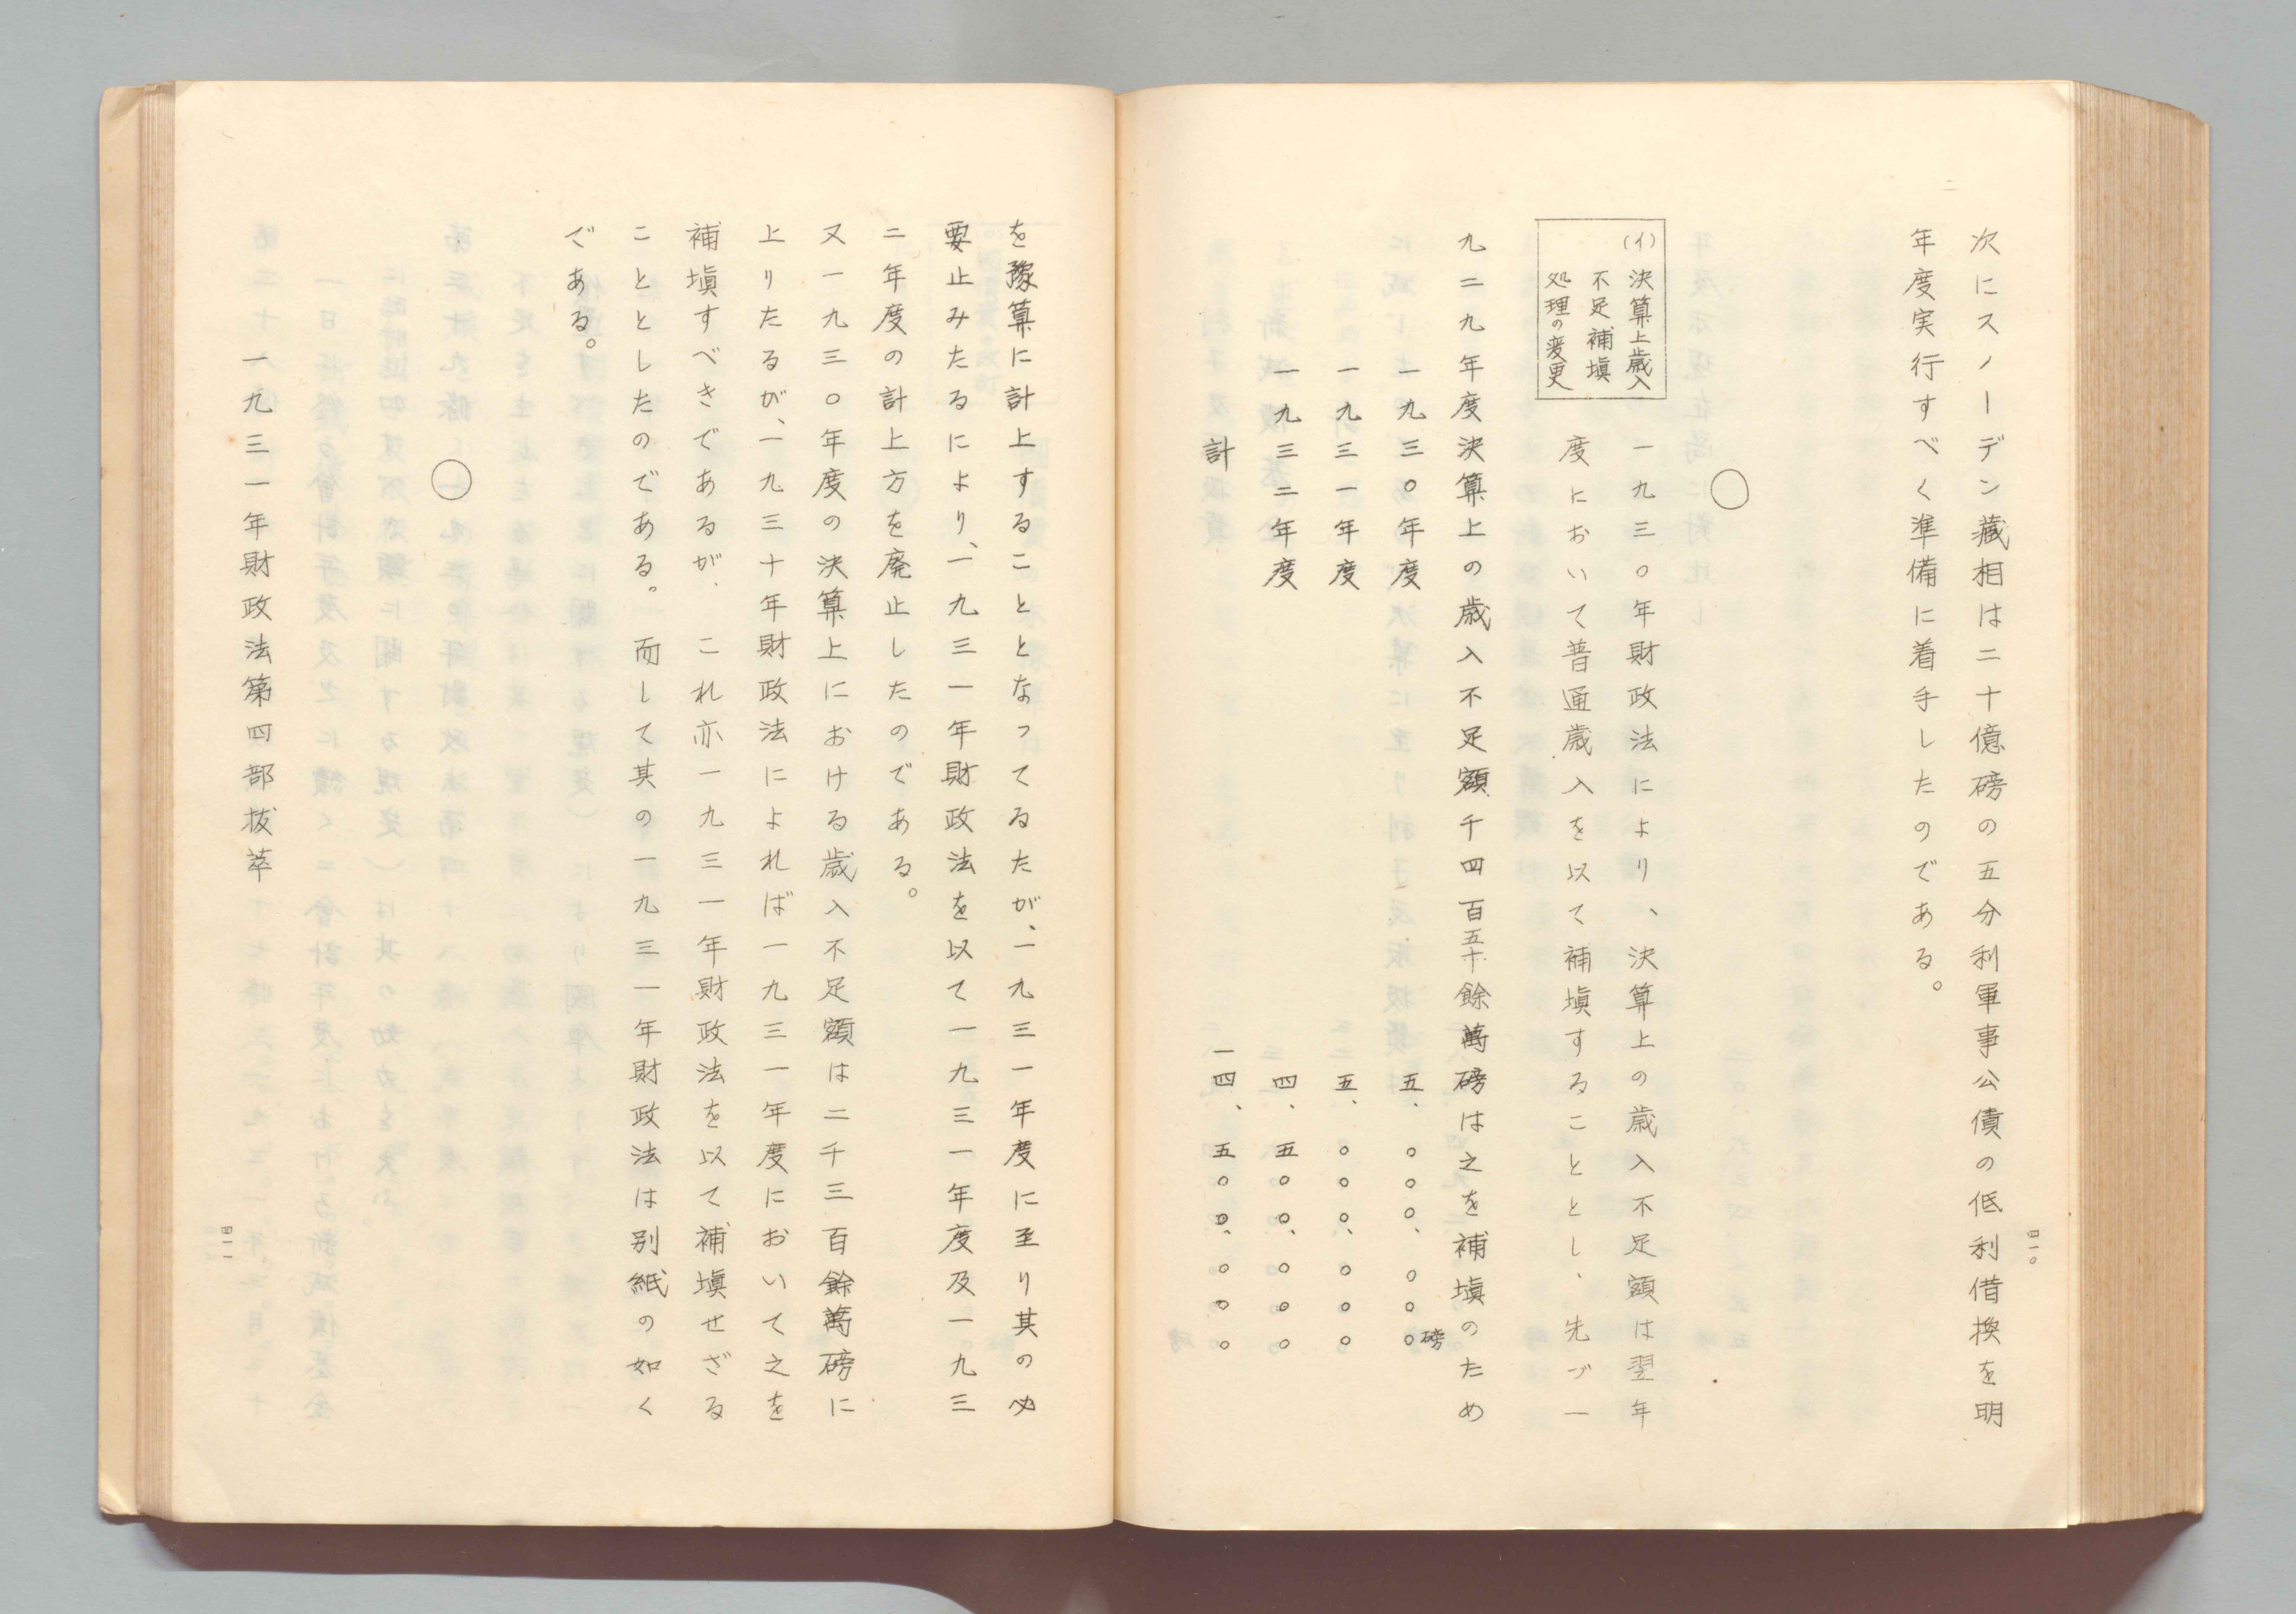 次にスノーデン藏相は二十億磅の五分利軍事公債の低利借換を明
年度実行すべく準備に着手したのである。
○
(イ)決算上歳入
不足補塡
処理の変更
一九三〇年財政法により、決算上の歳入不足額は翌年
度において普通歳入を以て補塡することとし、先づ一
九二九年度決算上の歳入不足額千四百五十餘萬磅は之を補塡のため
一九三〇年度 五、〇〇〇、〇〇〇磅
一九三一年度 五、〇〇〇、〇〇〇
一九三二年度 四、五〇〇、〇〇〇
計 一四、五〇〇、〇〇〇
四一〇
を豫算に計上することとなってゐるたが、一九三一年度に至り其の必
要止みたるにより、一九三一年財政法を以て一九三一年度及一九三
二年度の計上方を廃止したのである。
又一九三〇年度の決算上における歳入不足額は二千三百餘萬磅に
上りたるが、一九三十年財政法によれば一九三一年度において之を
補塡すべきであるが、これ亦一九三一年財政法を以て補塡せざる
こととしたのである。而して其の一九三一年財政法は別紙の如く
である。
○
一九三一年財政法第四部抜萃
四一一